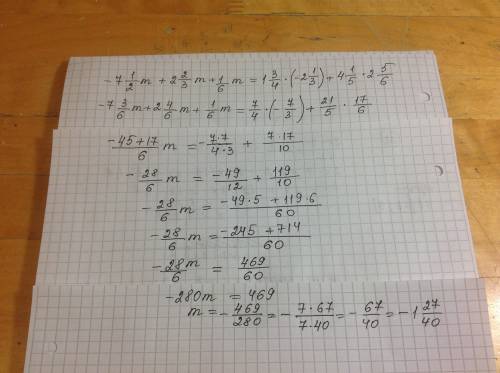 -7 1/2 m + 2 2/3 m + 1/6 m = 1 3/4 · (-2 1/3) + 4 1/5 · 2 5/6
-7 3/6 m + 2 4/6 m + 1/6 m = 7/4 · (- 7/3) + 21/5 · 17/6
(-45+17)/6 m = - (7·7)/(4·3) + (7·17)/10
- 28/6 m = -49/12 + 119/10
- 28/6 m = (-49·5 + 119·6)/60
- 28/6 m = (-245 + 714)/60
- 28/6 m = 469/60
-280m = 469
m = - 469/280 = - (7·67)/(7·40) = - 67/40 = -1 27/40